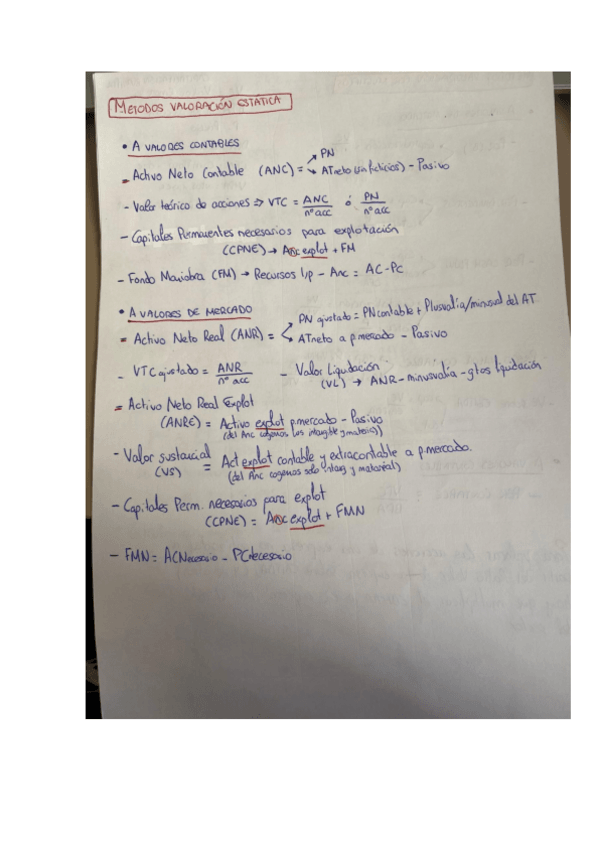 METODOS VALORACIÓN ESTÁTICA
• A VALORES CONTABLES
PN
= Activo Neto Contable (ANC) = ATneto (sin ficticios) - Pasivo
- Valor teórico de acciones => VTC = ANC / nº acc ó PN / nº acc
- Capitales Permanentes necesarios para explotación
(CPNE) → Anc explot + FM
- Fondo Maniobra (FM) → Recursos l/p - Anc = AC - PC
• A VALORES DE MERCADO
PN ajustado = PN contable + Plusvalía/minusval del AT
= Activo Neto Real (ANR) = ATneto a p.mercado - Pasivo
- VTC ajustado = ANR / nº acc - Valor Liquidación
(VL) → ANR - minusvalía - gtos liquidación
= Activo Neto Real Explot
(ANRE) = Activo explot p.mercado - Pasivo
(del Anc cogemos los intangible y material)
- Valor sustancial
(VS) = Act explot contable y extracontable a p.mercado.
(del Anc cogemos solo intang y material)
- Capitales Perm. necesarios para explot
(CPNE) = Anc explot + FMN
- FMN = ACNecesario - PCNecesario